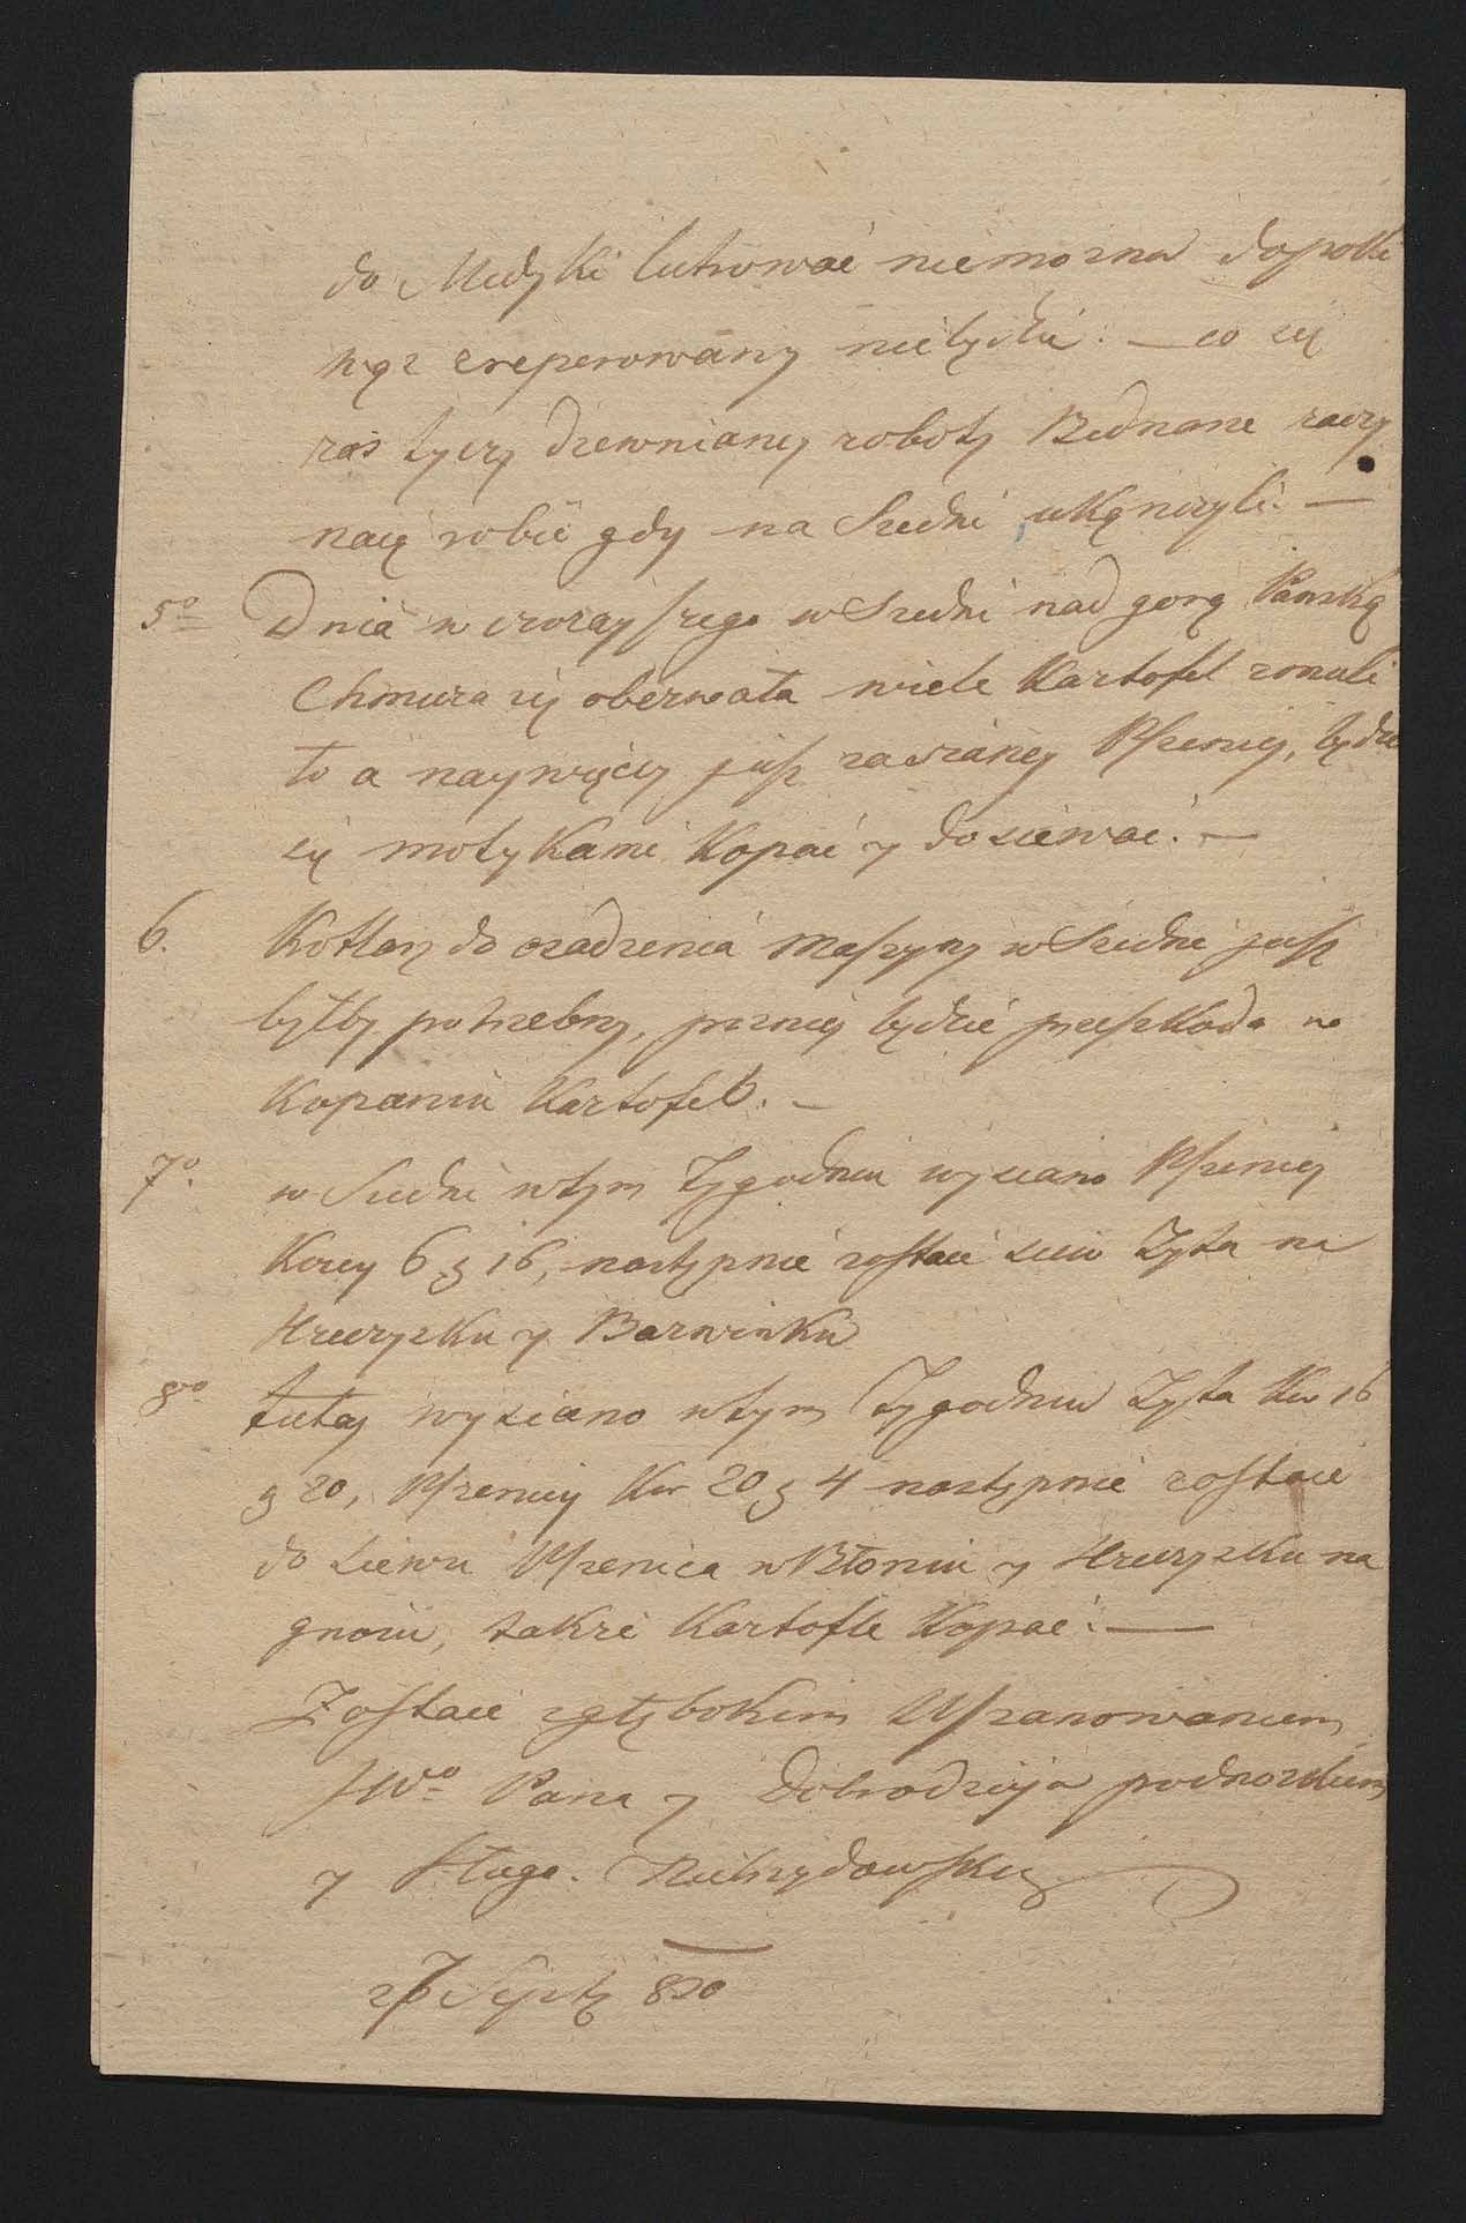 do Medyki lutrować niemożna dopoki
wąż zreperowany niebędzie. — co się
zaś tyczy drewnianey roboty Bednarze zaczy
naią robić gdy na Siedni ukąnczyli. —
5º Dnia wczorayszego w Siedni nad gorą Pańską
Chmura się oberwała wiele Kartofel zmuli
ło a naywięcey jusz zasianey Pszenicy, będzie
się motykami Kopać y dosiewać. —
6. Kotlarz do osadzenia Maszyny w Siedni jusz
byłby potrzebny, pozniey będzie przeszkoda w
Kopaniu Kartofel. —
7º. w Siedni wtym Tygodniu wysiano Pszenicy
Korcy 6 g 16, następnie zostaie siew Żyta na
Hreczysku y Barwinku
8vo tutay wysiano wtym Tygodniu Żyta Kor 16
g 20, Pszenicy Kor 20 g 4 następnie zostaie
do siewu Pszenica w Błoniu y Hreczysku na
gnoiu, także Kartofle Kopać. —
Zostaie zgłębokim Uszanowaniem
JWº Pana y Dobrodzieja podnożkiem
y Sługa.
Septb 820